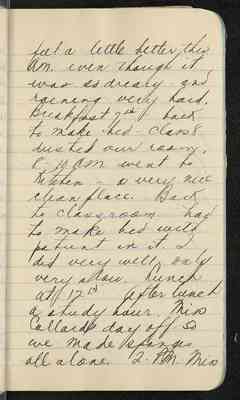 feel a little better this
A.M. even though it
was as dreary and
raining very hard.
Breakfast 7 15 back
to make bed - class 8
dusted our room.
A.M. went to
Kitchen - a very nice
clean place. Back
to classroom had
to make bed with
patient in it. I
did very well, only
very slow. Lunch
at 12 15 after lunch
a study hour. Miss
Collards day off so
we made sponges
all alone. 2 - P.M. Miss